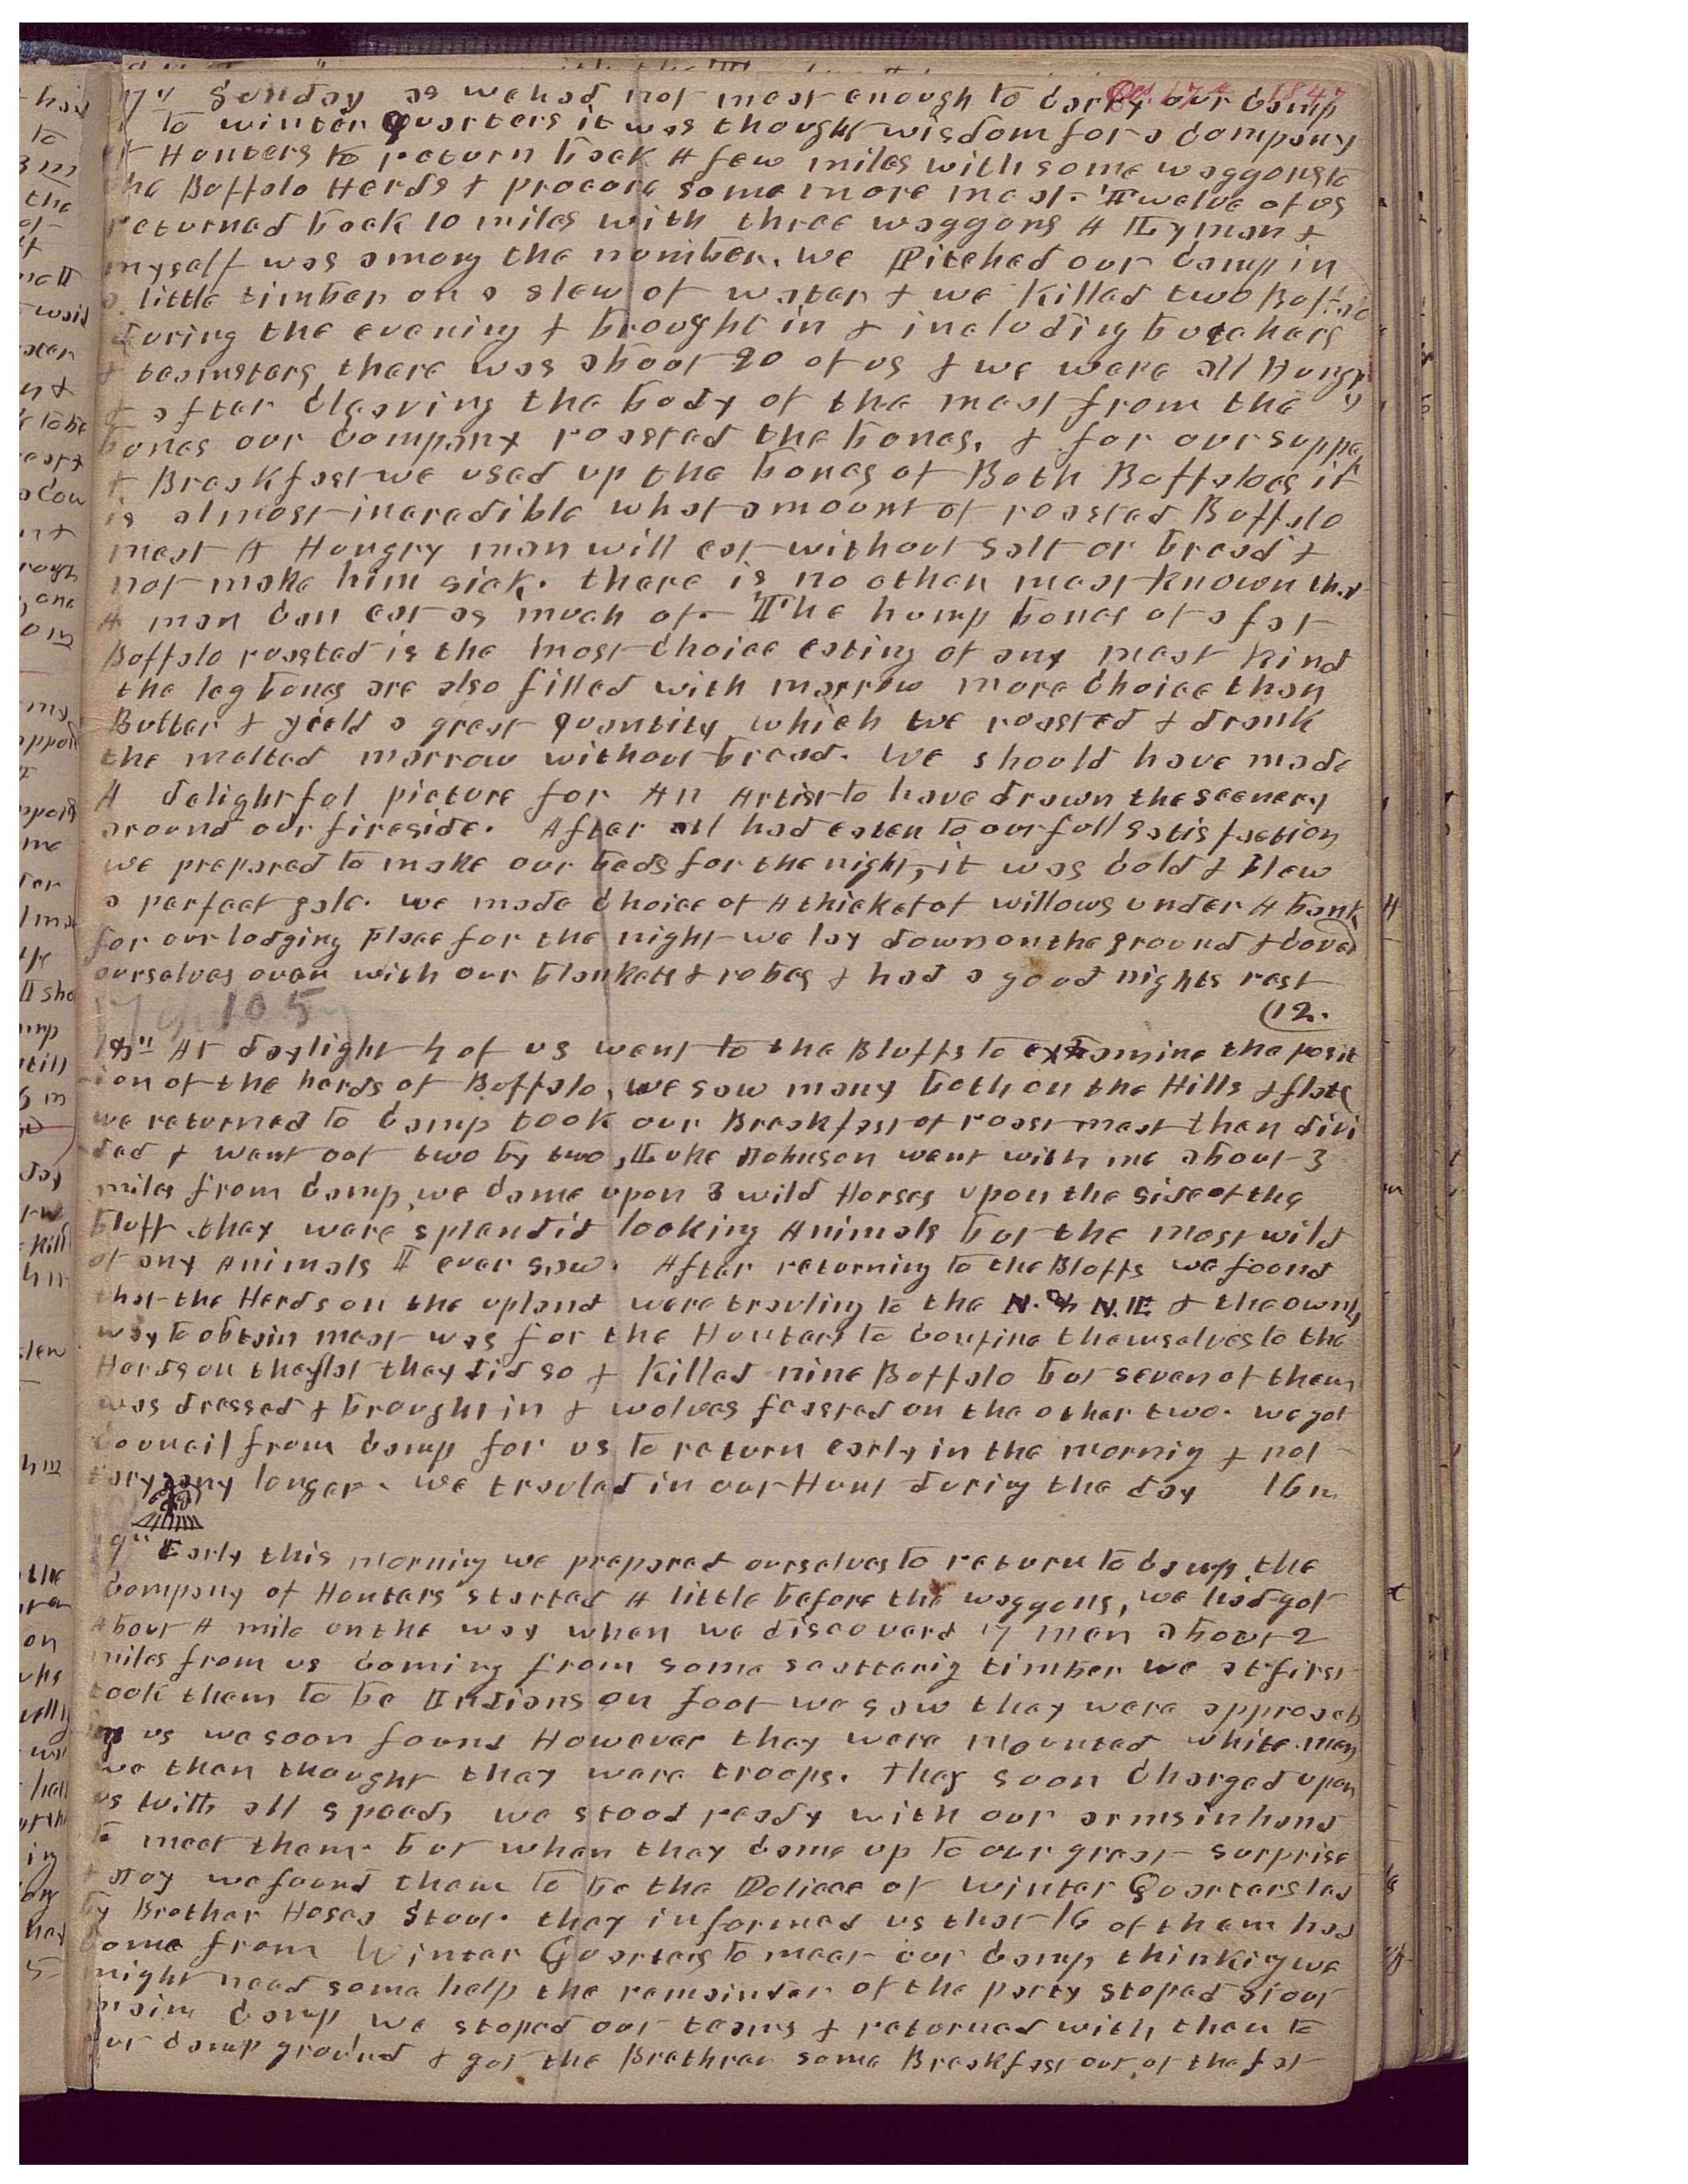 Oct 17th 1847
17th Sunday as we had not meat enough to carry our Camp
to winter Quarters it was thought wisdom for a Company
of Hunters to return back A few miles with some waggons to
the Buffalo Herds & procure some more meat. Twelve of us
returned back 10 miles with three waggons A Lyman &
myself was among the number. we Pitched our Camp in
a little timber on a slew of water & we killed two Buffalo
during the evening & brought in & including butchers
& teamsters there was about 20 of us & we were all Hungry
& after cleaving the body of the meat from the
bones our Company roasted the bones, & for our supper
& Breakfast we used up the bones of Both Buffaloes it
is almost incredible what amount of roasted Buffalo
meat A Hungry man will eat without salt or bread &
not make him sick. there is no other meat known that
A man can eat as much of. The hump bones of a fat
Buffalo roasted is the most choice eating of any meat kind
the leg bones are also filled with marrow more choice than
Butter & yield a great quantity which we roasted & drank
the melted marrow without bread. We should have made
A delightful picture for An Artist to have drawn the scenery
around our fireside. After all had eaten to our full satisfaction
we prepared to make our beds for the night, it was cold & blew
a perfect gale. we made choice of A thicket of willows under A bank
for our lodging place for the night we lay down on the ground & coverd
ourselves over with our blankets & robes & had a good nights rest
105
12.
18th At daylight 4 of us went to the Bluffs to examine the posit
ion of the herds of Buffalo, we saw many both on the Hills & flats
we returned to Camp took our Breakfast of roast meat then divi
ded & went out two by two, Luke Johnson went with me about 3
miles from Camp, we came upon 3 wild Horses upon the side of the
bluff. they were splendid looking Animals but the most wild
of any Animals I ever saw. After returning to the Bluffs we found
that the Herds on the upland were travling to the N. & N.E & the ownly
way to obtain meat was for the Hunters to confine themselves to the
Herds on the flat they did so & killed nine Buffalo but seven of them
was dressed & brought in & wolves feasted on the other two. we got
Council from Camp for us to return early in the mornig & not
tary any longer. we travled in our Hunt during the day 16 m
19th Early this morning we prepared ourselves to return to Camp. the
Company of Hunters started A little before the waggons, we had got
About A mile on the way when we discoverd 7 men about 2
miles from us coming from some scatterig timber we at first
took them to be Indians on foot we saw they were approach
ing us we soon found However they were mounted white men
we then thought they were troops. they soon charged upon
us with all speed, we stood ready with our arms in hand
to meet them. but when they came up to our great surprise
& Joy we found them to be the Police of Winter Quarters led
by Brother Hosea Stout. they informed us that 16 of them had
come from Winter Quarters to meet our Camp thinkig we
might need some help the remainder of the party stoped at our
main Camp we stoped our teams & returned with them to
our camp ground & got the Brethren some Breakfast out of the fat